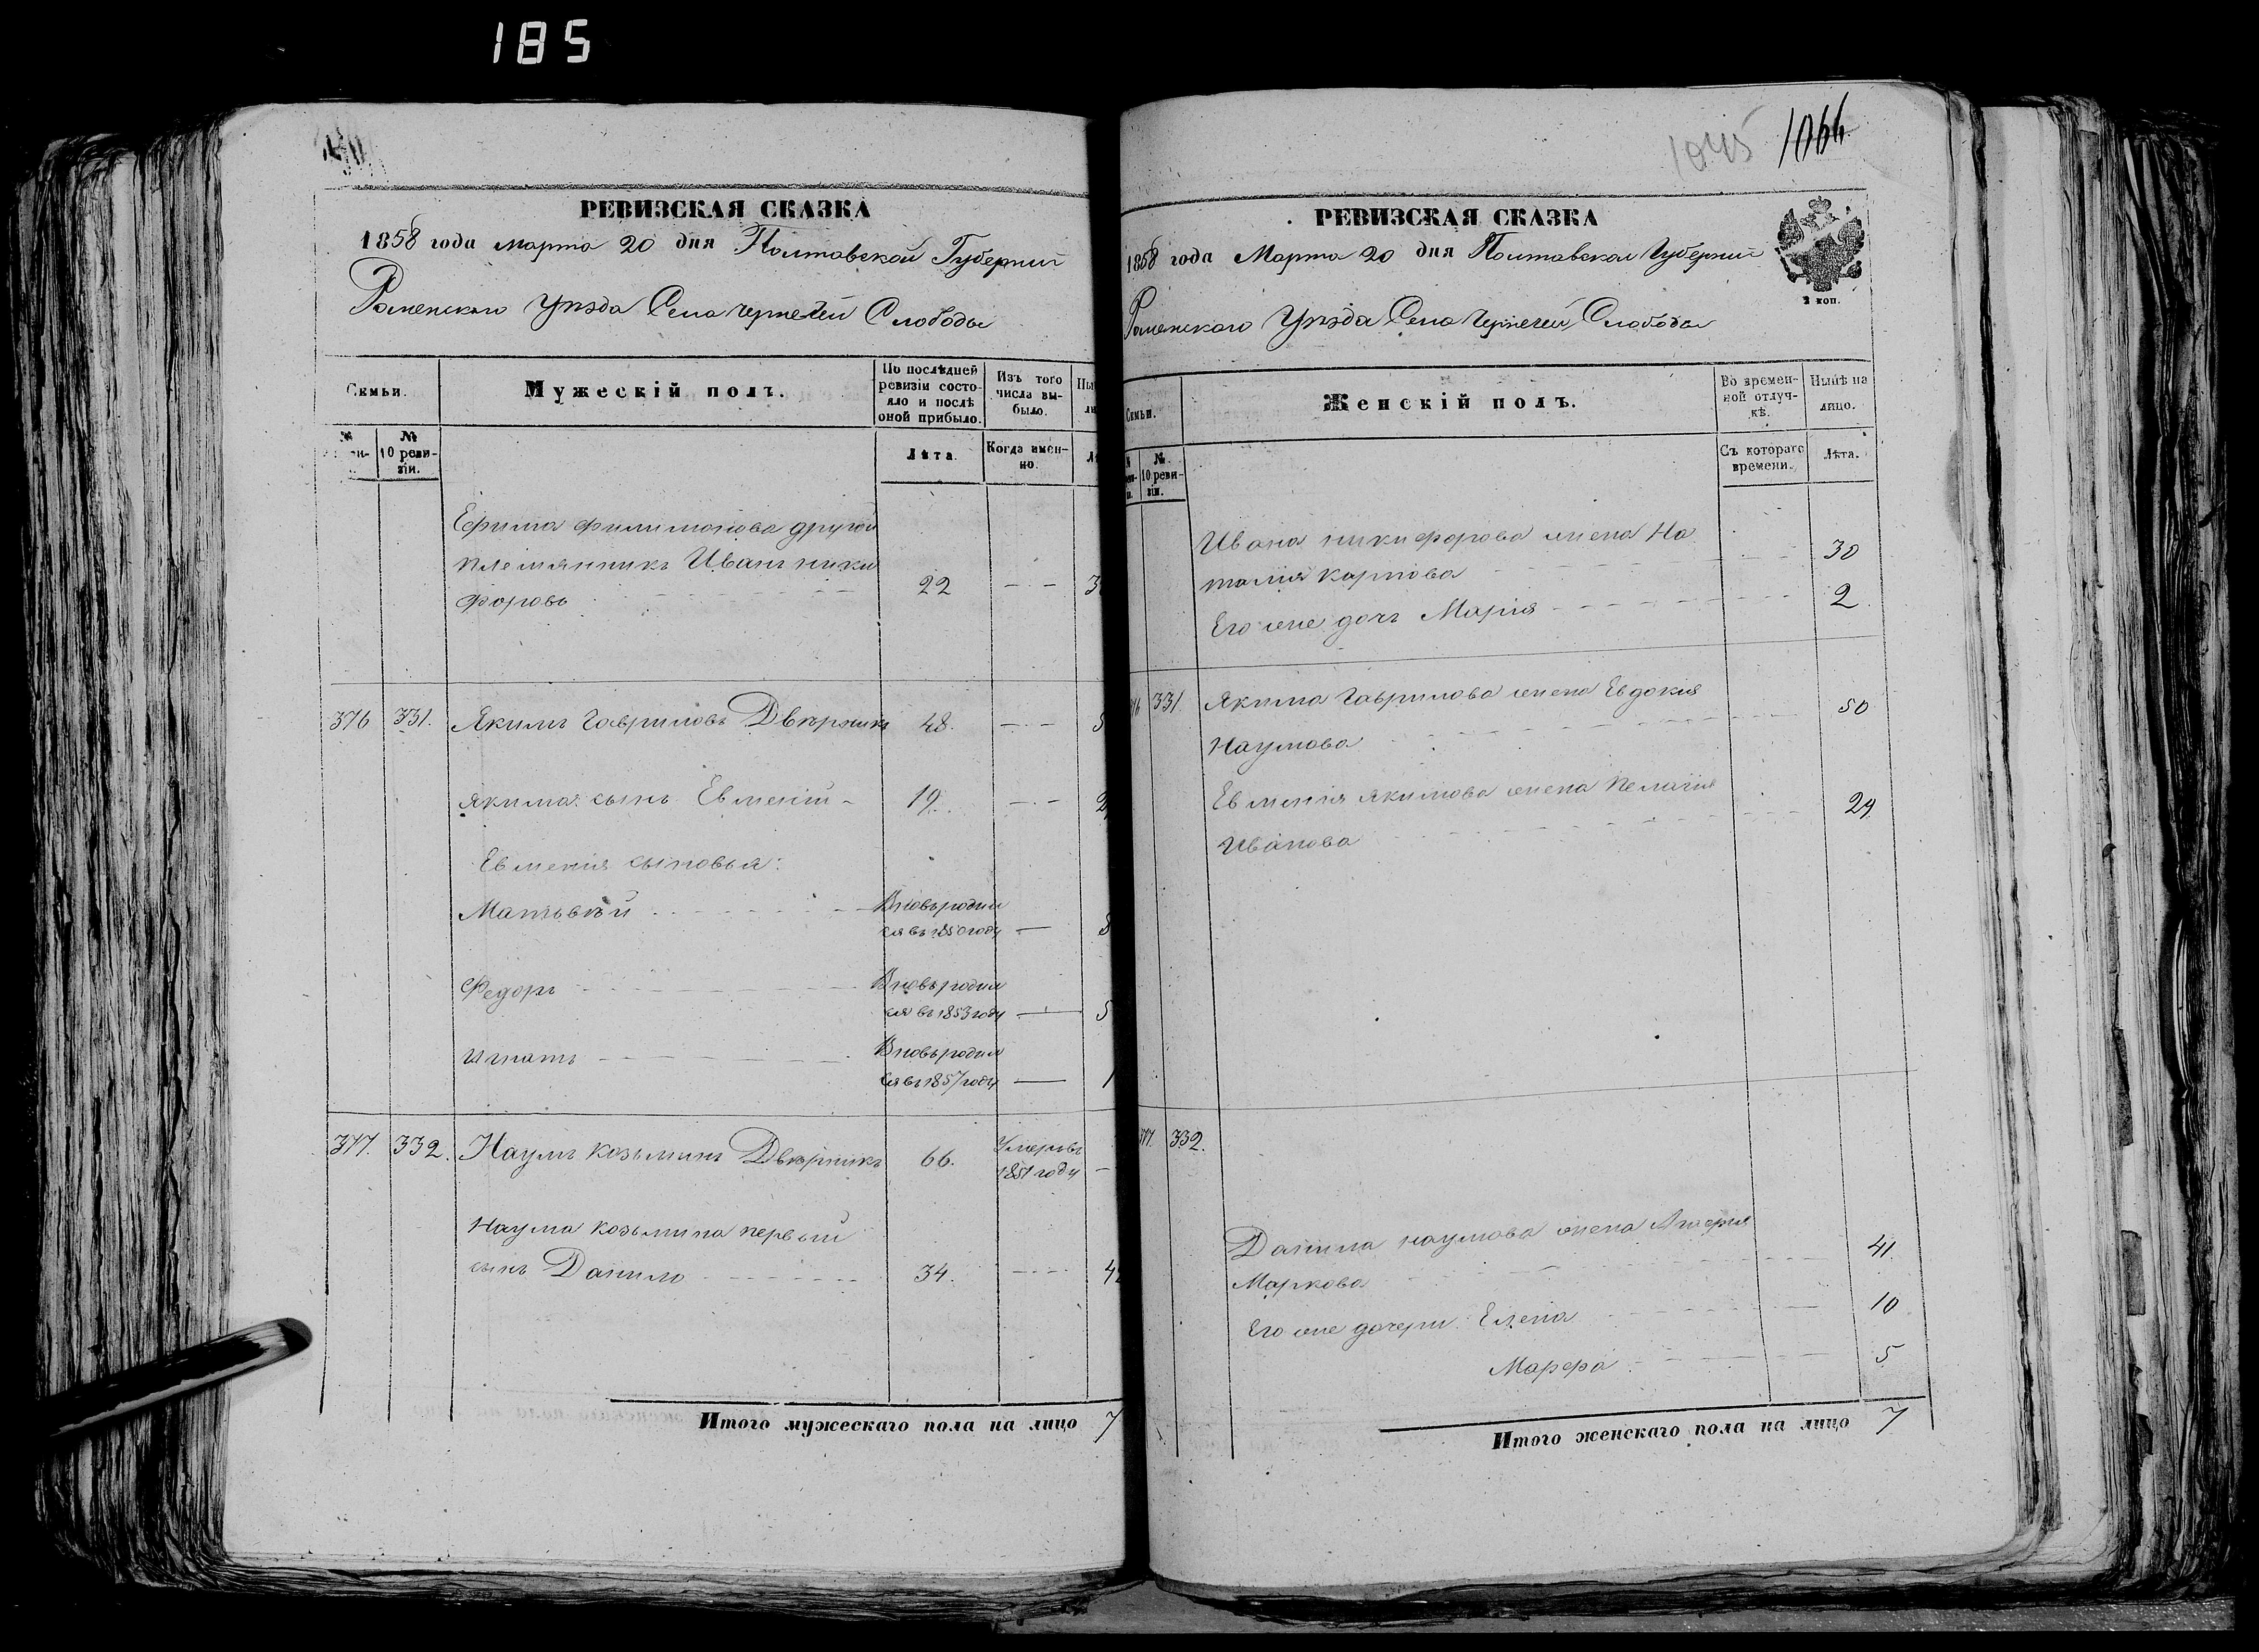 185
РЕВИЗСКАЯ СКАЗКА
1858 года Марта 20 дня Полтавской Губернии
Роменскаго Уѣзда Села Чернечей Слободы
Семьи.
Мужескій полъ.
По послѣдней ревизіи состояло и послѣ оной прибыло.
Изъ того числа выбыло.
№ 10 ревизіи.
Лѣта.
Когда именно.
Ефима Филимонова другой
племянникъ Иванъ Ники
форовъ 22
376 331. Якимъ Гавриловъ Двѣрникъ 48.
Якима сынъ Евменій 19.
Евменія сыновья:
Матьвѣй Вновь родил
ся въ 1850 году
Федоръ Вновь родил
ся въ 1853 году 5
Игнатъ Вновь родил
ся въ 1857 году 1
377. 332. Наумъ Козьминъ Двѣрникъ 66. Умеръ въ
1851 году
Наума Козьмина первый
сынъ Данило 34.
Итого мужескаго пола на лицо 7
1045 1066.
РЕВИЗСКАЯ СКАЗКА
1858 года Марта 20 дня Полтавской Губернии
2 коп.
Роменскаго Уѣзда Села Чернечей Слободы
Семьи.
Женскій полъ.
Во временной отлучкѣ.
Нынѣ на лицо.
№ 10 ревизіи.
Съ котораго времени.
Лѣта.
Ивана Никифорова жена На
талія Карпова 30
Его же дочь Марія 2
331. Якима Гаврилова жена Евдокия
Наумова 50
Евменія Якимова жена Пелагия
Иванова 29
377. 332.
Данила Наумова жена
Маркова 41
Его же дочери: Елена 10
Марфа 5
Итого женскаго пола на лицо 7